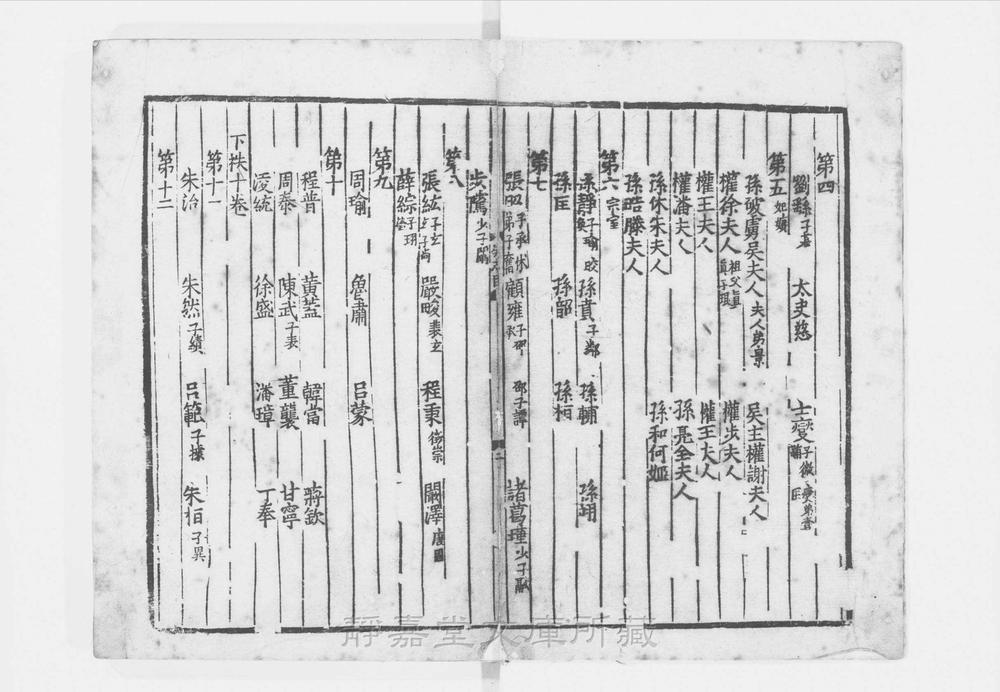 第四
劉繇子基 太史慈 士燮子徽 燮弟壹 䵋 匡
第五妃嬪
孫破虜吳夫人夫人弟景 吳主權謝夫人
權徐夫人祖父真 真子琨 權步夫人
權王夫人 權王夫人
權潘夫人 孫亮全夫人
孫休朱夫人 孫和何姬
孫晧滕夫人
第六宗室
孫靜子瑜 皎 奐 孫賁子鄰 孫輔 孫翊
孫匡 孫韶 孫桓
第七
張昭子承 休 弟子奮 顧雍子邵 邵子譚 承 諸葛瑾少子融
步騭少子闡
第八
張紘子玄 玄子尚 嚴畯裴玄 程秉徵崇 闞澤唐固
薛綜子珝 瑩
第九
周瑜 魯肅 呂蒙
第十
程普 黃蓋 韓當 蔣欽
周泰 陳武子表 董襲 甘寧
淩統 徐盛 潘璋 丁奉
下袟十卷
第十一
朱治 朱然子績 呂範子據 朱桓子異
第十二
靜嘉堂文庫所藏